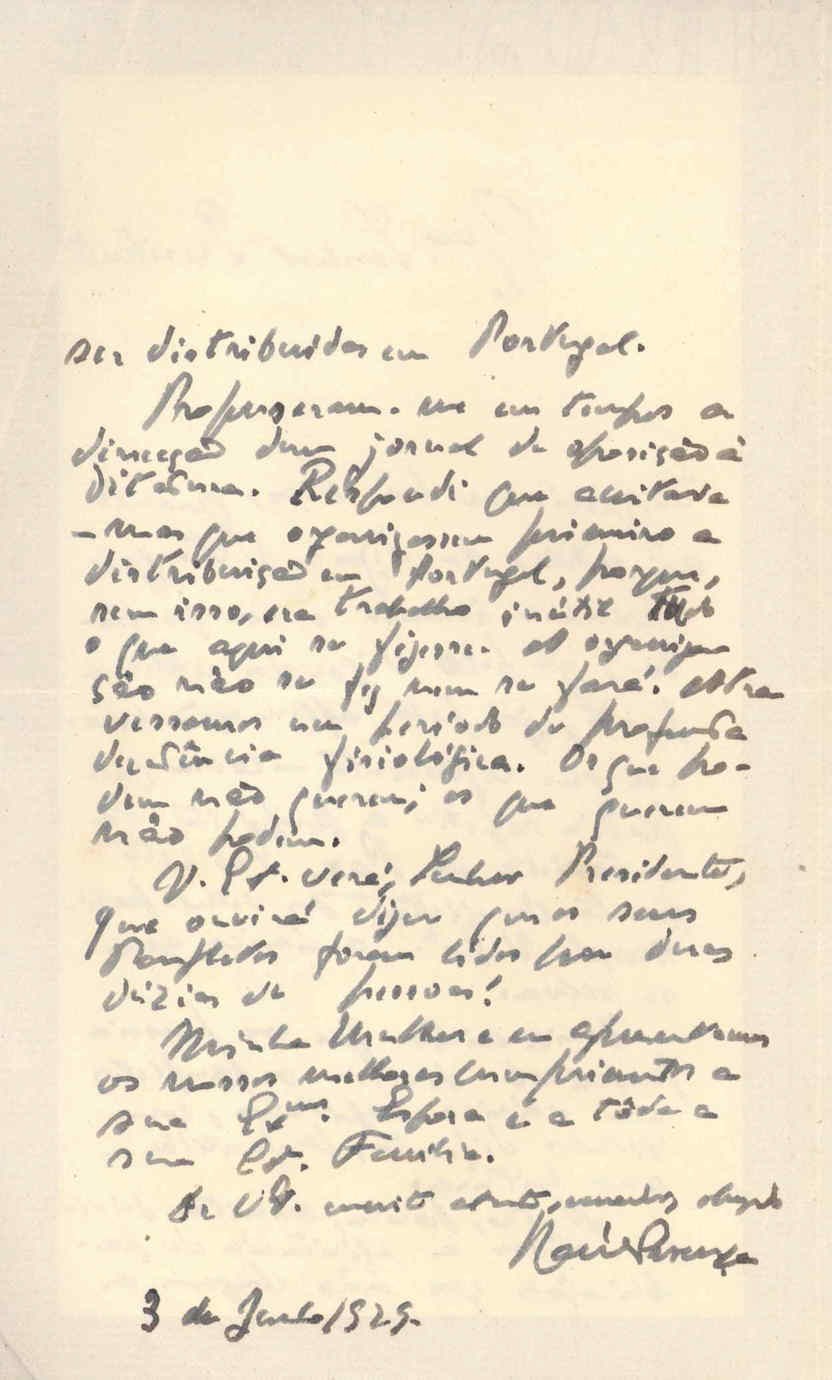 ser distribuidos em Portugal.
Propuseram-me em tempos a
direcção dum jornal de oposição á
Ditadura. Respondi que aceitava
– mas que organizassem primeiro a
distribuição em Portugal, porque,
sem isso, era trabalho inútil tudo
o que aqui se fizesse. A organiza
ção não se fez nem se fará. Atra
vessamos um período de profunda
decadência fisiológica. Os que po-
dem não querem; os que querem
não podem.
V. Exª. verá, Senhor Presidente,
que ouvirá dizer que os seus
Panfletos foram lidos por duas
dúzias de pessoas!
Minha Mulher e eu apresentamos
os nossos melhores cumprimentos a
sua Exma. Esposa e a tôda a
sua Exª. Família.
De V. muito
Raúl Proença
3 de Junho 1929.